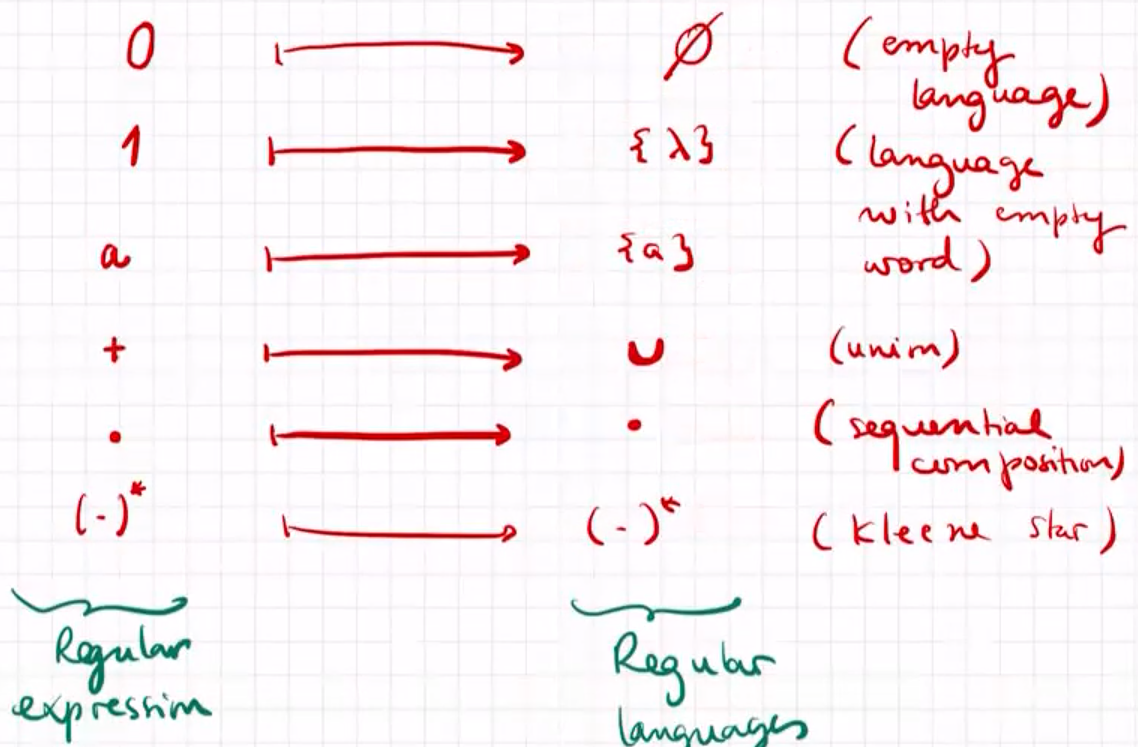 0 ↦ ∅ (empty
language)
1 ↦ {λ} (language
with empty
word)
a ↦ {a}
+ ↦ ∪ (union)
· ↦ · (sequential
composition)
(-)* ↦ (-)* (Kleene star)
Regular
expression
Regular
languages